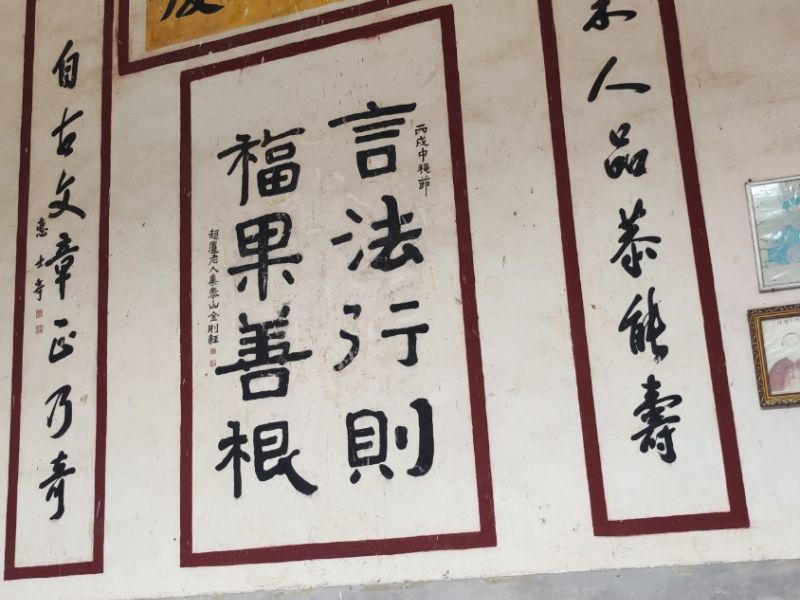 人品恭能壽
丙戌中秋節
言法行則
福果善根
超廬老人集泰山金剛經
自古文章正乃奇
惠士奇